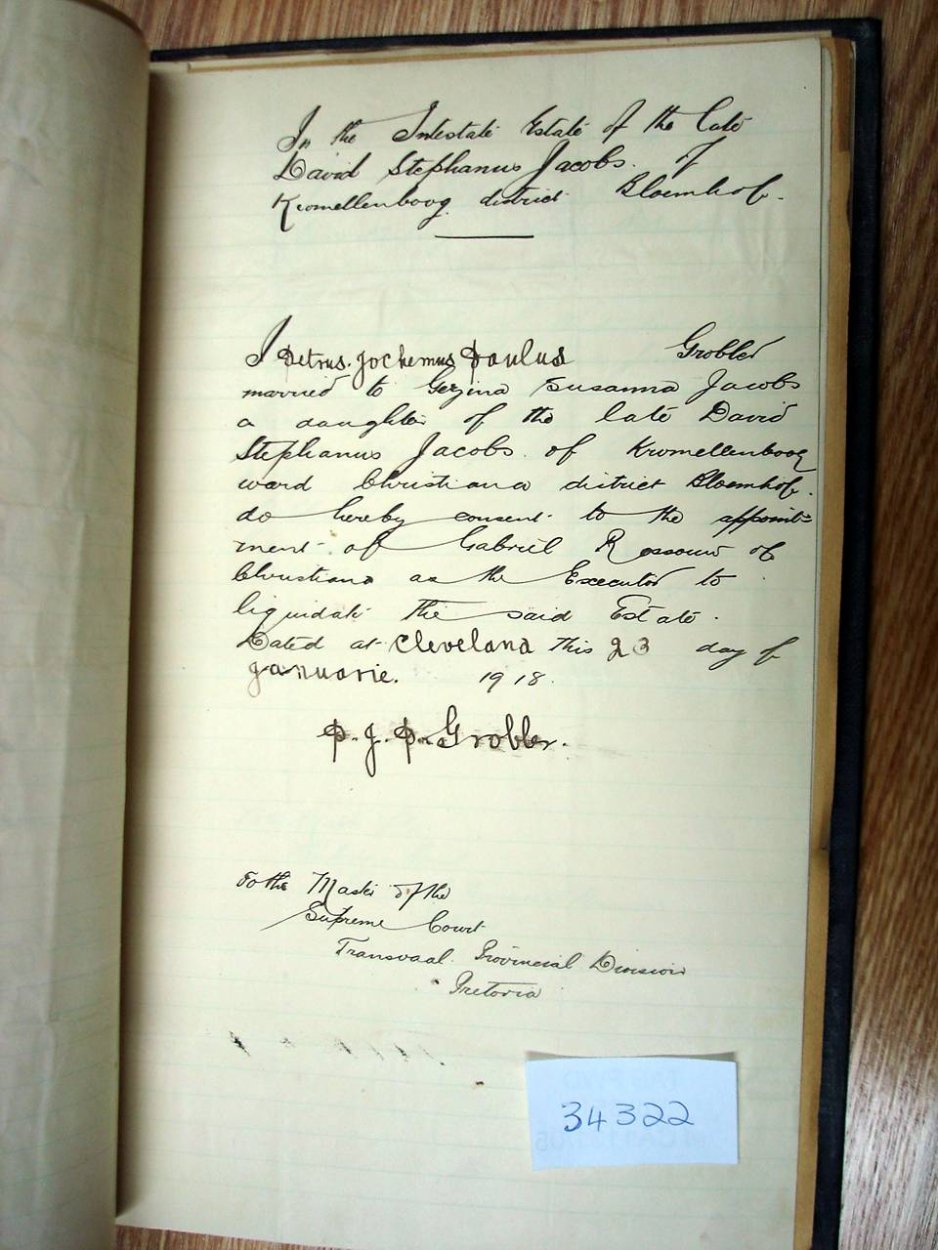 In the Intestate Estate of the late
David Stephanus Jacobs of
Kromellenboog district Bloemhof.
I Petrus Jochemus Paulus Grobler
married to Gezina Susanna Jacobs
a daughter of the late David
Stephanus Jacobs of Kromellenboog
ward Christiana district Bloemhof.
do hereby consent to the appoint-
ment of Gabriel Rossouw of
Christiana as the Executor to
liquidate the said Estate.
Dated at Cleveland this 23 day of
januarie. 1918.
P. J. P. Grobler.
To the Master of the
Supreme Court
Transvaal Provincial Division
Pretoria
34322